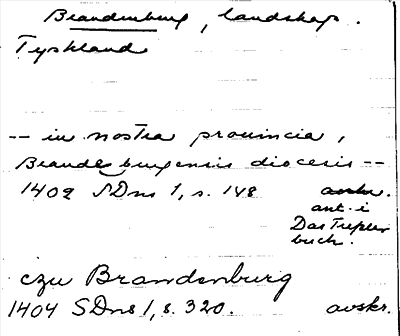 Brandenburg, landskap.
Tyskland
-- in nostra prouincia,
Brandeburgensis diocesis --
1402 SDns 1, s. 148 avskr.
ant. i
Das Trepler
buch.
czu Brandenburg
1404 SDns 1, s. 320. avskr.